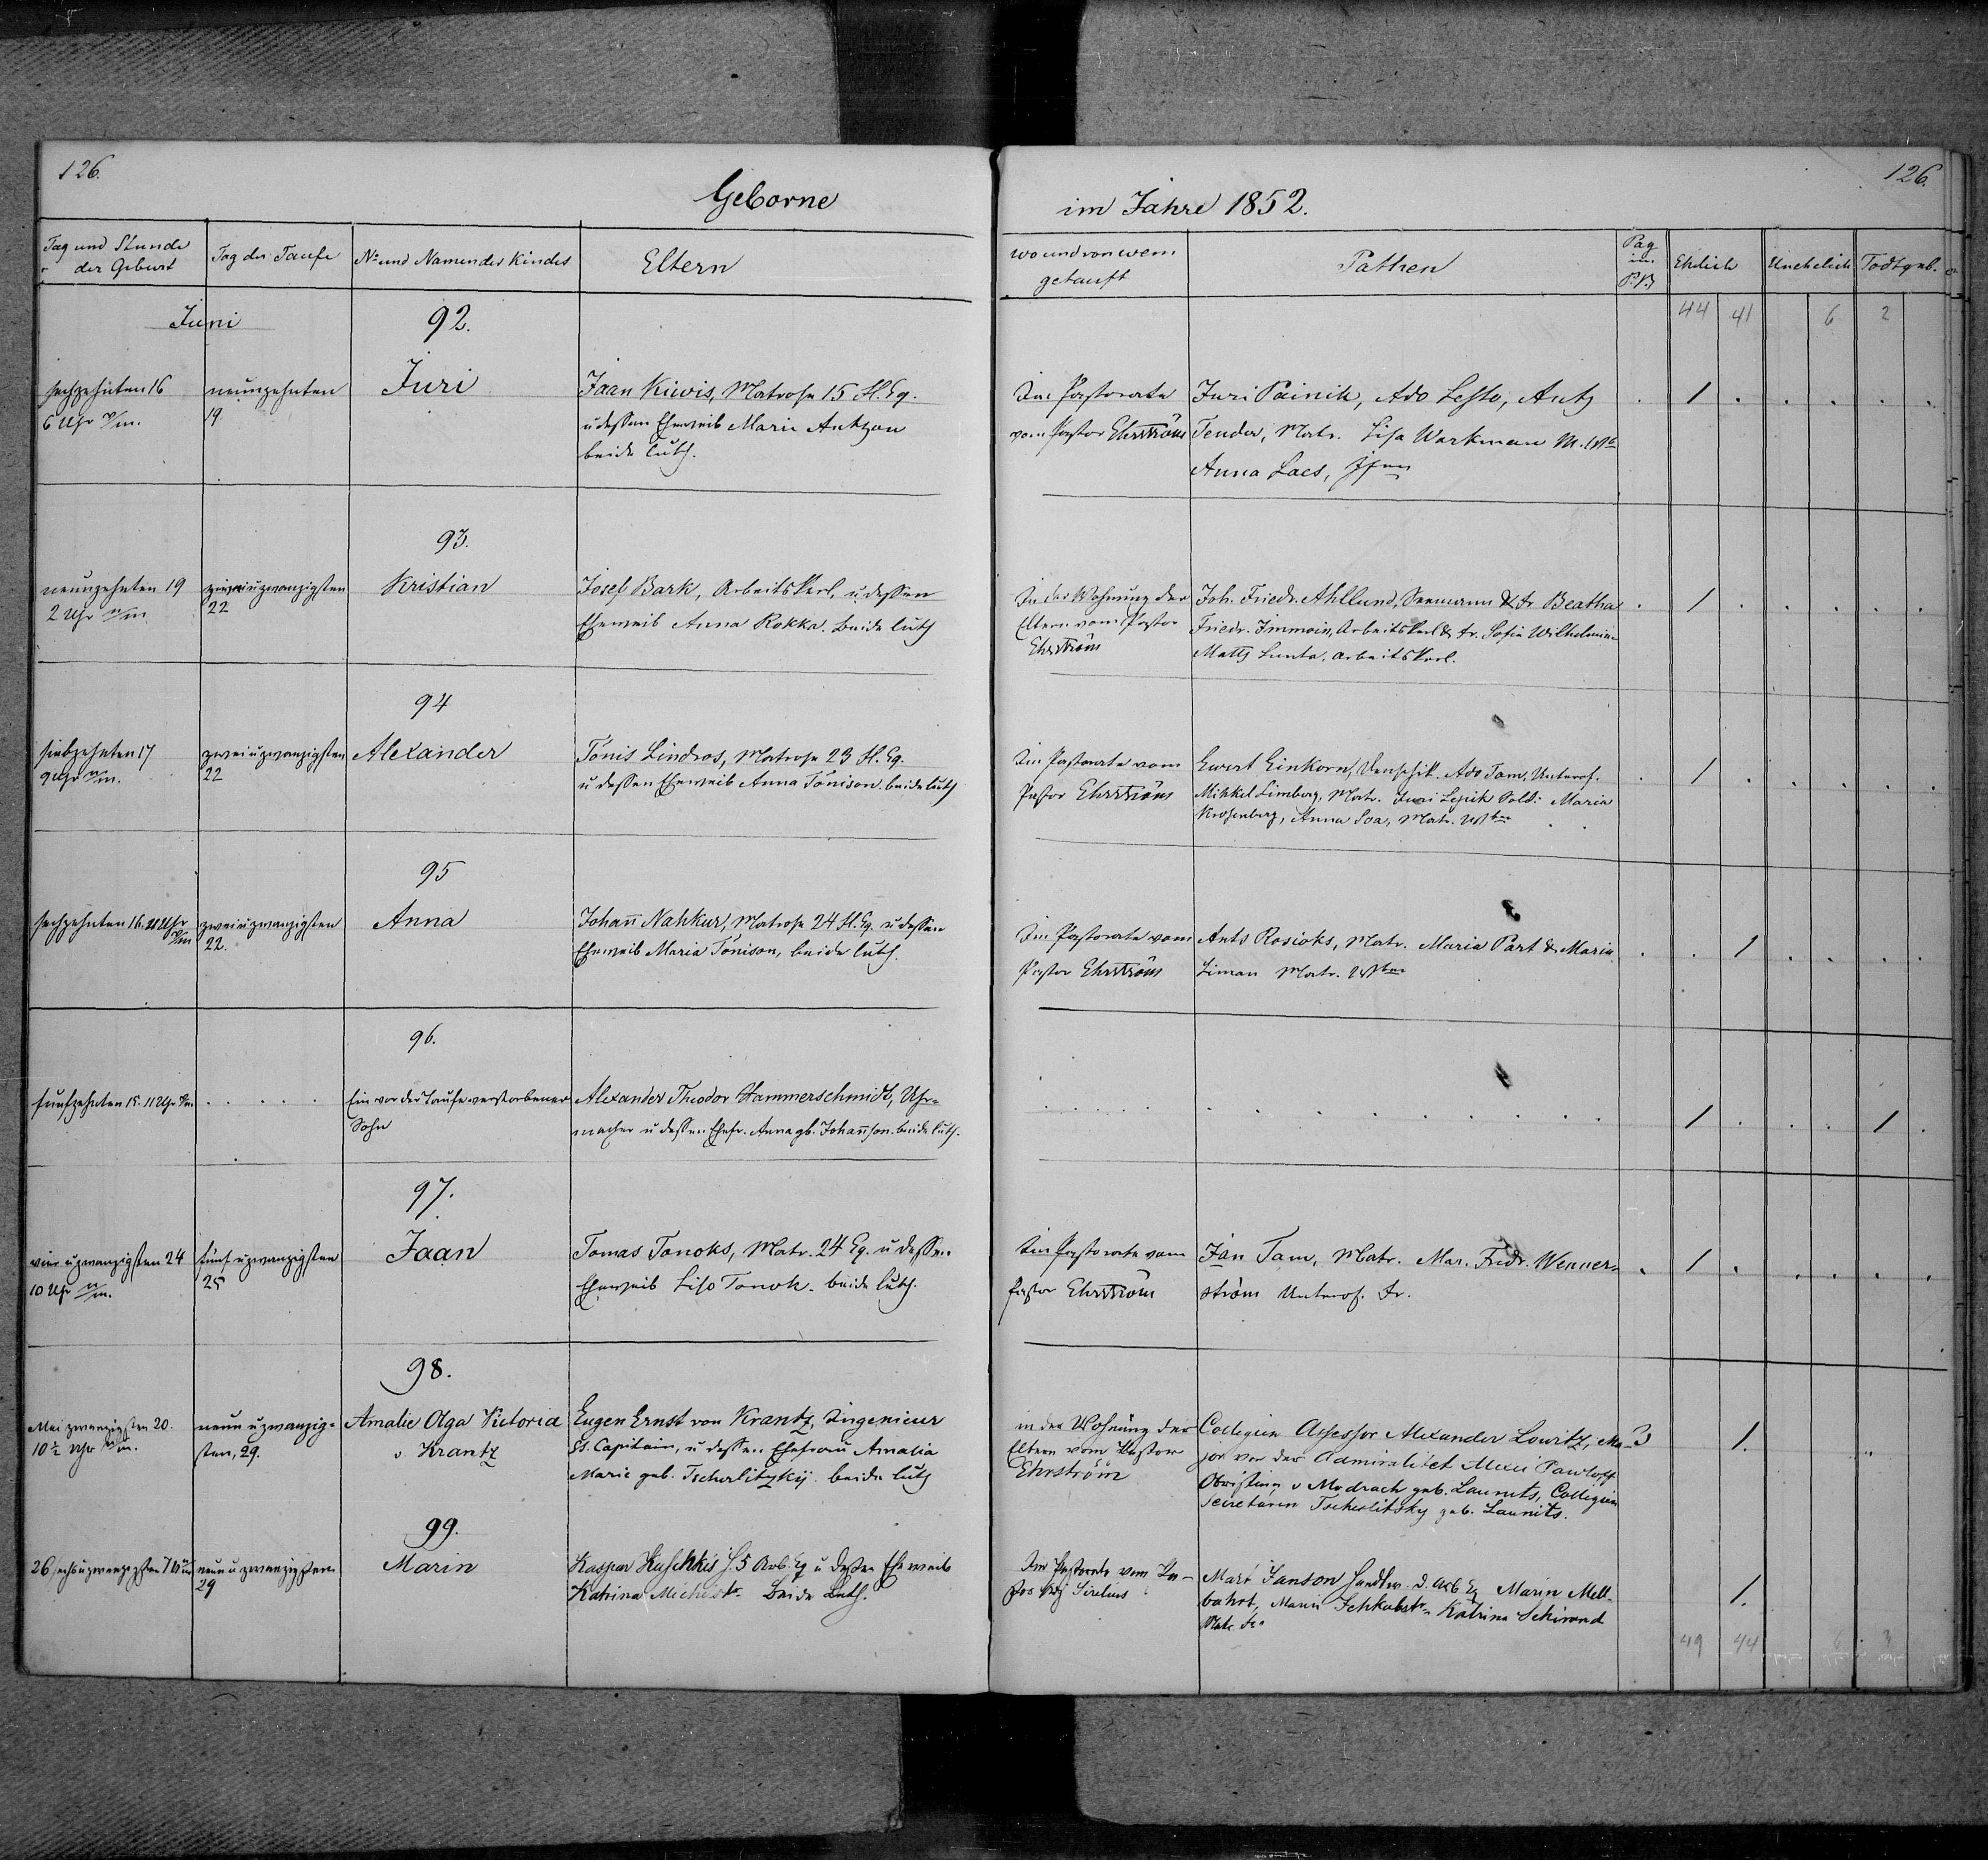 126.
126.
Geborne
im Jahre 1852.
Tag und Stunde
der Geburt
Tag der Taufe
No und Namen des Kindes
Eltern
wo und von wem
getauft
Pathen
Pag
in
P.B
Ehelich
Unehelich
Todtgeb.
Juni
92.
44 41 6 2
sechzehnten 16
6 Uhr V/m.
neunzehnten
19
Juri
Jaan Kiwis, Matrose 15 Fl. Eq.
u dessen Eheweib Marie Antzon
beide luth.
Im Pastorate
vom Pastor Ehrström
Juri Painik, Ado Lesto, Antz
Tender, Matr. Lisa Workman M.
Anna Laes,
1
93.
neunzehnten 19
2 Uhr N/m
zweiuzwanzigsten
22
Kristian
Josef Bark, Arbeitskerl, u dessen
Eheweib Anna Rokka. beide luth
In der Wohnung der
Eltern vom Pastor
Ehrström
Joh. Friedr. Ahllund, Seemann & Fr. Beatha
Friedr. Immoin, Arbeitskerl & Fr. Sofia Wilhelmine
Matts Lunta, Arbeitskerl.
1
94
siebzehnten 17
9 Uhr V/m.
zweiuzwanzigsten
22
Alexander
Tönis Lindros, Matrose 23 Fl. Eq.
u dessen Eheweib Anna Tönison. beide luth
Im Pastorate vom
Pastor Ehrström
Ewert Einkorn, Ado Tam, Unterof.
Mihkel Limberg, Matr. Juri Lepik Sold: Maria
Krosenberg, Anna Soa, Matr.
1
95
sechzehnten 16. Uhr
zweiuzwanzigsten
22.
Anna
Johañ Nahkur, Matrose 24 Fl. Eq. u dessen
Eheweib Maria Tönison, beide luth.
Im Pastorate vom
Pastor Ehrström
Ants Rosioks, Matr. Maria Part & Maria
Liman Matr.
1
96.
funfzehnten 15. 11 Uhr
Ein vor der Taufe verstorbener
Sohn
Alexander Theodor Hammerschmidt, Uhr-
macher u dessen Ehefr. Anna gb. Johañson. beide luth.
1 1
97.
vier uzwanzigsten 24
10 Uhr V/m.
fünf uzwanzigsten
25
Jaan
Tomas Tonoks, Matr. 24 Eq. u dessen
Eheweib Liso Tonok. beide luth.
Im Pastorate vom
Pastor Ehrström
Jan Tam, Matr. Mar. Fredr. Wenner-
ström Unterof. Fr.
1
98.
Mai zwanzigsten 20.
10½ Uhr V/m.
neun uzwanzig-
sten, 29.
Amalie Olga Victoria
v. Krantz
Eugen Ernst von Krantz, Ingenieur
St. Capitain, u dessen Ehefrau Amalia
Marie geb. Tscherlitzkij. beide luth
in der Wohnung der
Eltern vom Pastor
Ehrström
Collegien Assessor Alexander Lowitz, Ma-
jor von der Admiralität Alexei Pawloff
Obristin v Modrach geb. Launits, Collegien
Secretärin Tscherlitsky geb. Launits.
3
1.
99.
26 sechsuzwanzigsten 7
neun uzwanzigsten
29
Marin
Kaspar Kuschkis 5 Arb. Eq u dessen Eheweib
Katrina Beide Luth.
Im Pastorate vom Pa-
stor Sirelius
Mart Janson Marin Mell-
bahrt, Marri Katrina Schirand
Matr. Fr.
1.
49 44 6 3